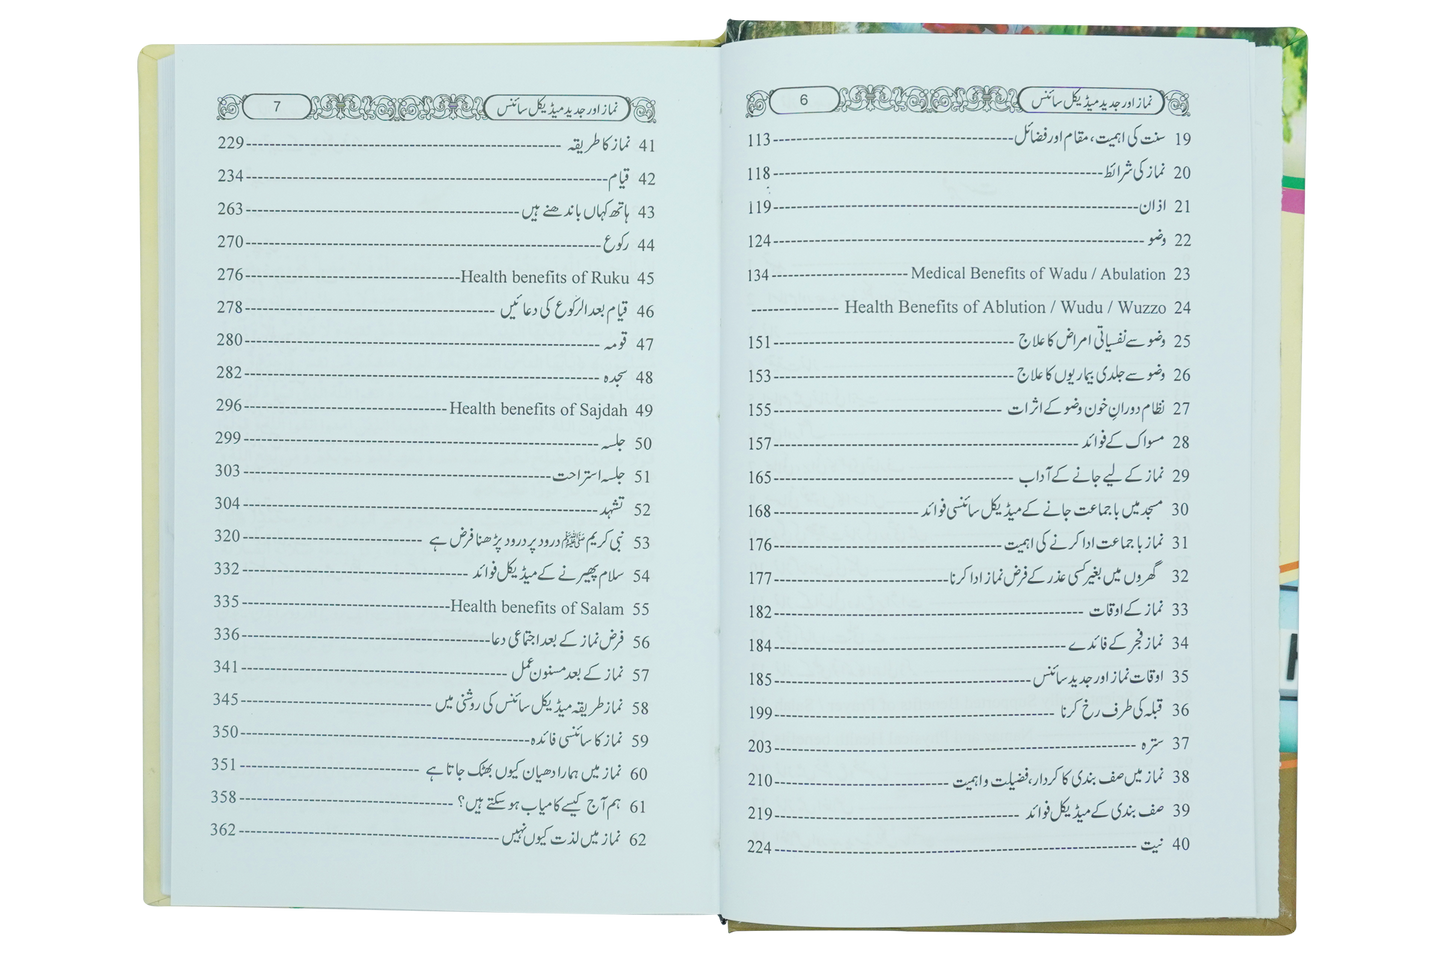 نماز اور جدید میڈیکل سائنس 6
19 سنت کی اہمیت، مقام اور فضائل 113
20 نماز کی شرائط 118
21 اذان 119
22 وضو 124
23 Medical Benefits of Wadu / Abulation 134
24 Health Benefits of Ablution / Wudu / Wuzzo
25 وضو سے نفسیاتی امراض کا علاج 151
26 وضو سے جلدی بیماریوں کا علاج 153
27 نظام دورانِ خون وضو کے اثرات 155
28 مسواک کے فوائد 157
29 نماز کے لیے جانے کے آداب 165
30 مسجد میں با جماعت جانے کے میڈیکل سائنسی فوائد 168
31 نماز با جماعت ادا کرنے کی اہمیت 176
32 گھروں میں بغیر کسی عذر کے فرض نماز ادا کرنا 177
33 نماز کے اوقات 182
34 نماز فجر کے فائدے 184
35 اوقات نماز اور جدید سائنس 185
36 قبلہ کی طرف رخ کرنا 199
37 سترہ 203
38 نماز میں صف بندی کا کردار، فضیلت و اہمیت 210
39 صف بندی کے میڈیکل فوائد 219
40 نیت 224
نماز اور جدید میڈیکل سائنس 7
41 نماز کا طریقہ 229
42 قیام 234
43 ہاتھ کہاں باندھنے ہیں 263
44 رکوع 270
45 Health benefits of Ruku 276
46 قیام بعد الرکوع کی دعائیں 278
47 قومہ 280
48 سجدہ 282
49 Health benefits of Sajdah 296
50 جلسہ 299
51 جلسہ استراحت 303
52 تشہد 304
53 نبی کریم ﷺ درود پر درود پڑھنا فرض ہے 320
54 سلام پھیرنے کے میڈیکل فوائد 332
55 Health benefits of Salam 335
56 فرض نماز کے بعد اجتماعی دعا 336
57 نماز کے بعد مسنون عمل 341
58 نماز طریقہ میڈیکل سائنس کی روشنی میں 345
59 نماز کا سائنسی فائدہ 350
60 نماز میں ہمارا دھیان کیوں بھٹک جاتا ہے 351
61 ہم آج کیسے کامیاب ہو سکتے ہیں؟ 358
62 نماز میں لذت کیوں نہیں 362